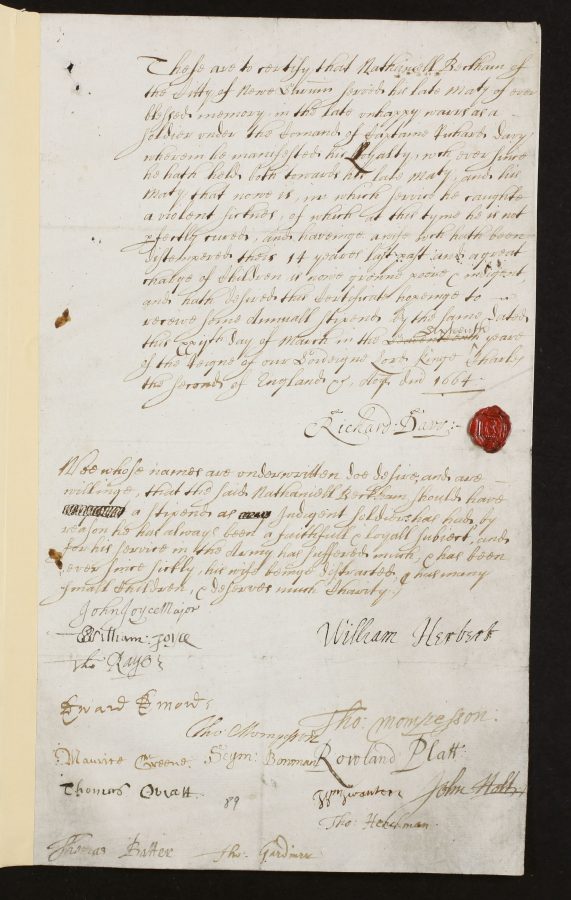 These are to certify that Nathaniell Beckham of
the Citty of New Sarum served his late Maty of ever
blessed memory, in the late unhappy warrs as a
soldier under the Comand of Captaine Richard Davy
wherein he manifested his Loyalty, wch ever since
he hath held both towards his late Maty, and his
Maty that nowe is, in which service he caughte
a violent sicknes, of which at this tyme he is not
pfectly cured, and haveinge a wife wch hath been
distempered theis 14 yeares last past and a great
charge of Children is nowe growne poore & indigent,
and hath desired this Certificate hopeinge to
receive some Annuall stipend by the same, Dated
this day of March in the sixteenth yeare
of the Reigne of our Soveigne Lord Kinge Charles
the second of England &c Anno Dni 1664
Richard: Davy:
Wee whose names are underwritten doe desire, and are
willinge, that the said Nathaniell Beckham should have
a stipend as Indigent Soldiers has had, by
reason he has always been a faithfull & loyall subiect, and
for his service in the Army has suffered much, & has been
ever since sickly, his wife beinge distracted, & his many
small Children, & deserves much Charity
John Joyce Major
William: Joyce
William Herbert
Tho:
Edward
Tho Mompesson
Tho: mompesson:
Maurice Greene
Seym: Bowman
Rowland Platt
Thomas
89
John
Tho: Henchman
Thomas Batter
Tho: Gardiner